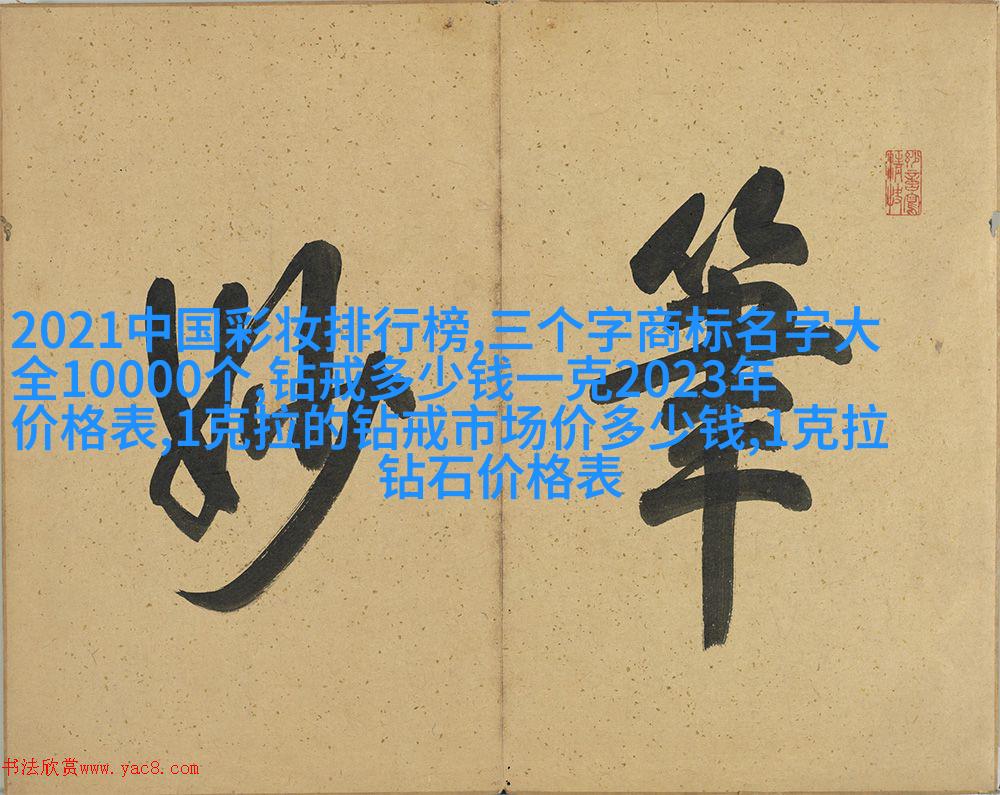 筆妙
2021中国彩妆排行榜,三个字商标名字大
全10000个,钻戒多少钱一克2023年
价格表,1克拉的钻戒市场价多少钱,1克拉
钻石价格表
书法欣赏www.yac8.com